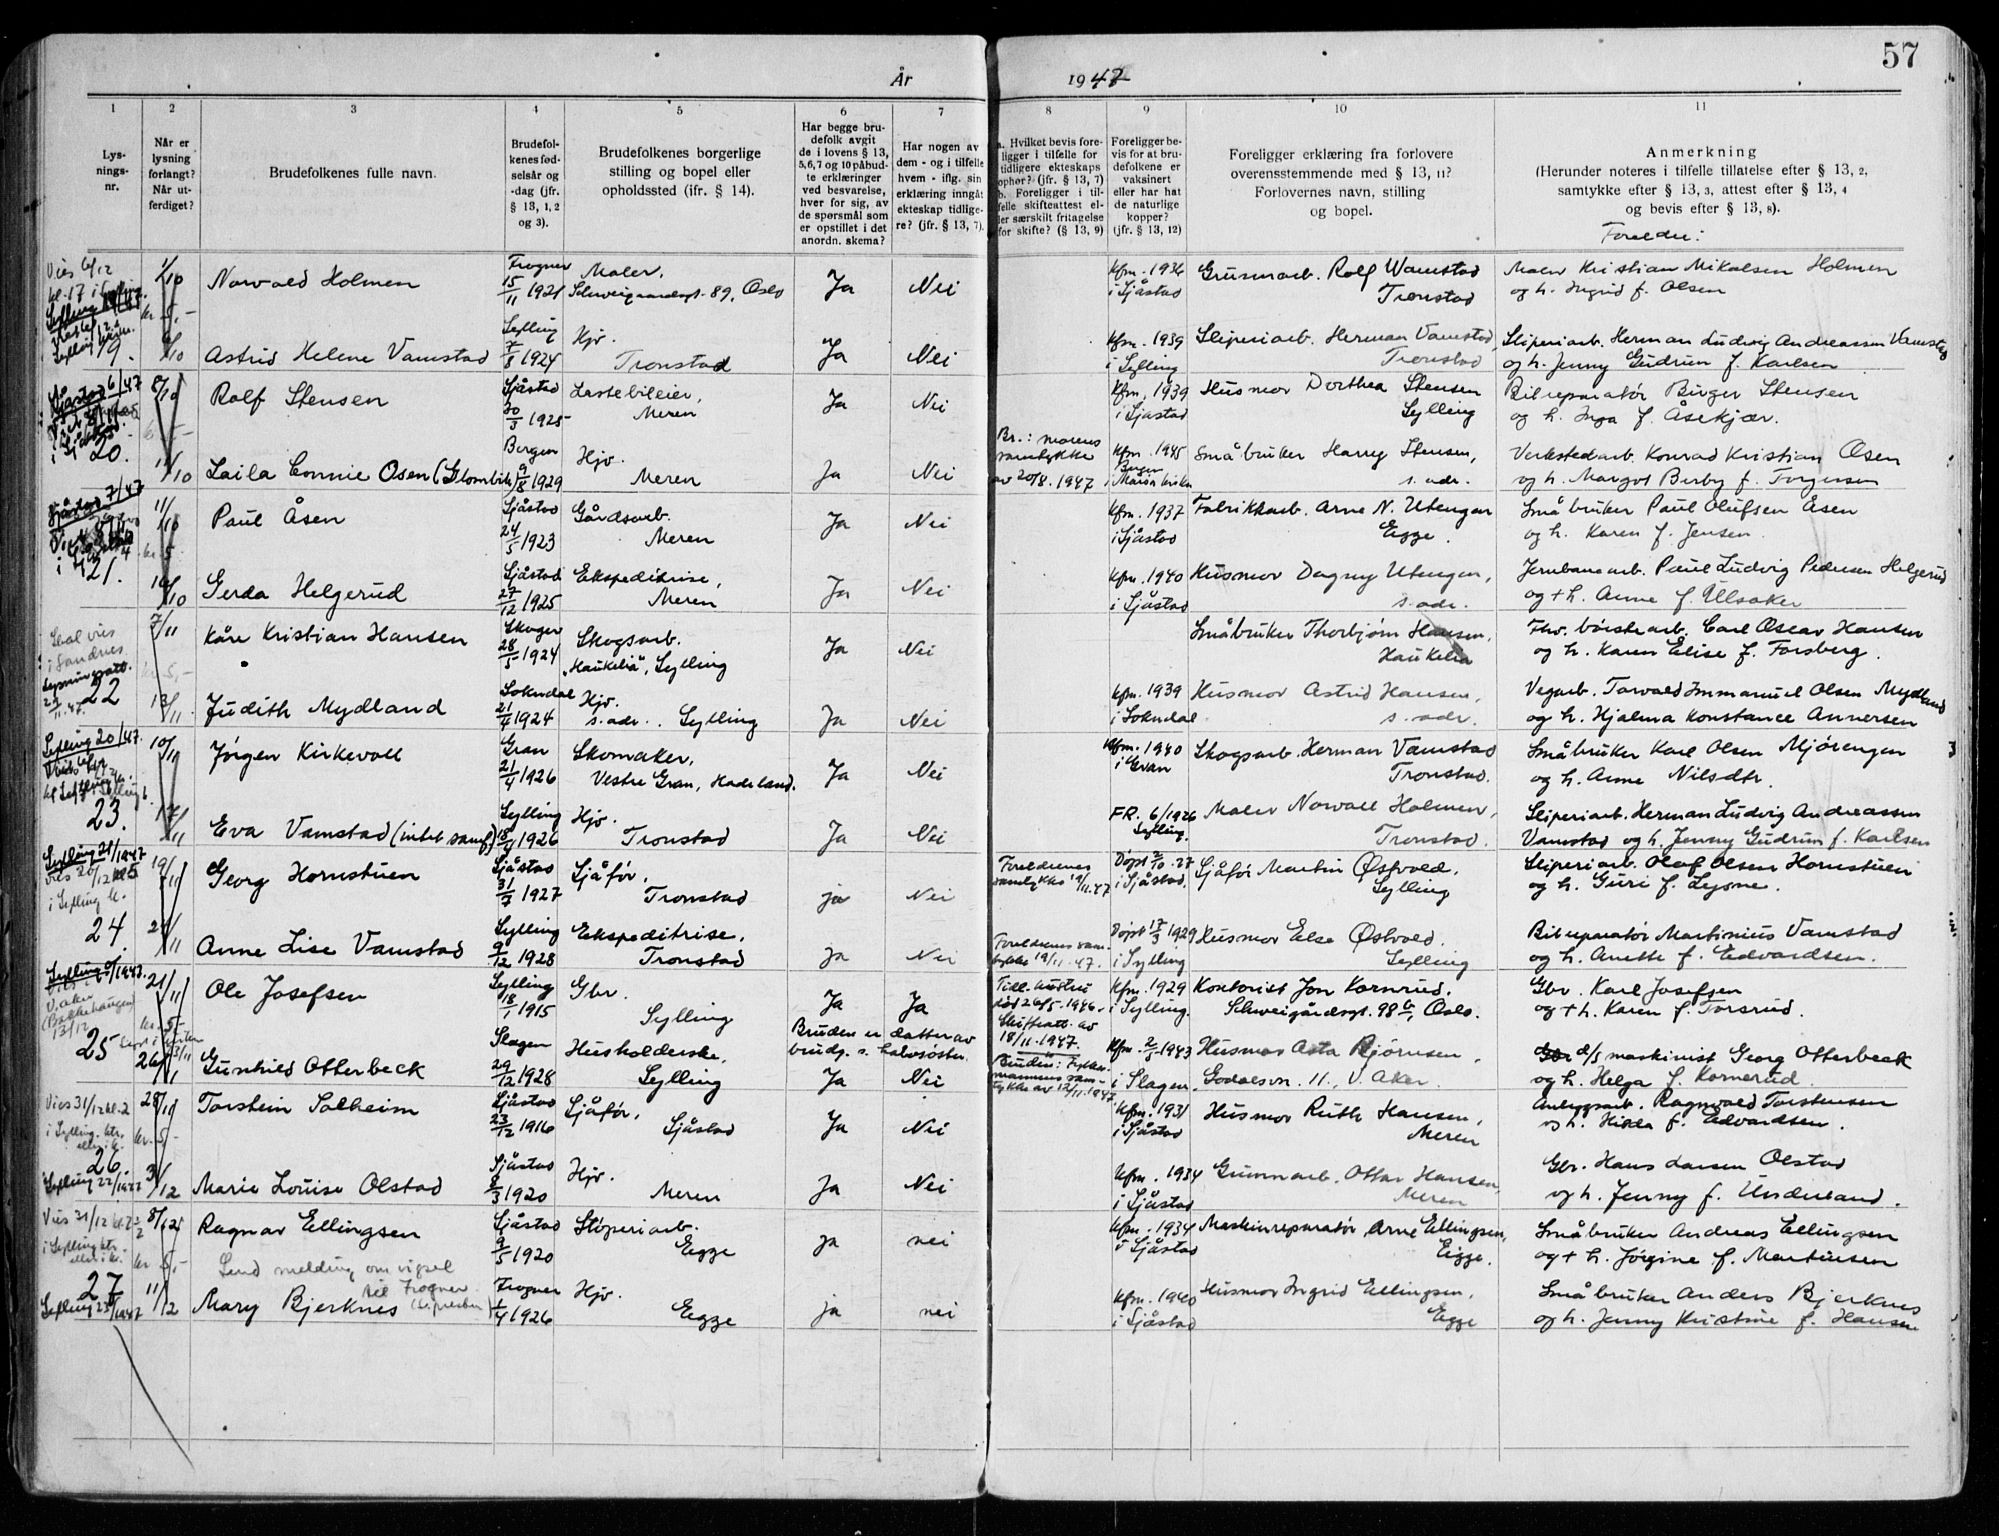 57
År 1947
1 2 3 4 5 6 7 8 9 10 11
Lys-
nings-
nr.
Når er
lysning
forlangt?
Når ut-
ferdiget?
Brudefolkenes fulle navn.
Brudefol-
kenes fød-
selsår og
-dag (jfr.
§ 13, 1, 2
og 3).
Brudefolkenes borgerlige
stilling og bopel eller
opholdssted (jfr. § 14).
Har begge bru-
defolk avgit
de i lovens § 13,
5,6,7 og 10 påbud-
te erklæringer
ved besvarelse,
hver for sig, av
de spørsmål som
er opstillet i det
anordn. skema?
Har nogen av
dem - og i tilfelle
hvem - iflg. sin
erklæring inngåt
ekteskap tidlige-
re? (jfr. § 13, 7).
a. Hvilket bevis fore-
ligger i tilfelle for
tidligere ekteskaps
ophør? (jfr. § 13, 7)
b. Foreligger i til-
felle skifteattest el-
ler særskilt fritagelse
for skifte? (§ 13, 9)
Foreligger be-
vis for at bru-
defolkene er
vaksinert
eller har hat
de naturlige
kopper?
(jfr. § 13, 12)
Foreligger erklæring fra forlovere
overensstemmende med § 13, 11?
Forlovernes navn, stilling
og bopel.
Anmerkning
(Herunder noteres i tilfelle tillatelse efter § 13, 2,
samtykke efter § 13, 3, attest efter § 13, 4
og bevis efter § 13, 8).
Foreldre:
Vies 6/12
kl. 17 i
1/10 Norvald Holmen Frogner 15/11 1921 Maler, Schweigaardsgt. 89, Oslo Ja Nei Kfm. 1936 i Sjåstad Grusarb. Rolf Wamstad Tronstad Maler Kristian Mikalsen Holmen
og h. Ingrid f. Olsen
kr. 5,-
19. 9/10 Astrid Helene Vamstad Sylling 7/8 1924 Hjv. Tronstad Ja Nei Kfm. 1939 i Sylling Sliperiarb. Herman Vamstad, Tronstad Sliperiarb. Herman Ludvig Andreassen Vamstad
og h. Jenny Gudrun f. Karlsen
Sjåstad 6/47
8/10 Rolf Stensen Sjåstad 30/3 1925 Lastebileier, Meren Ja Nei Kfm. 1939 i Sjåstad Husmor Dorthea Stensen Sylling Bilreparatør Birger Stensen
og h. Inga f. Åsekjær.
20. 11/10 Laila Connie Osen (Glombik) Bergen 9/8 1929 Hjv. Meren Ja Nei Br.: morens samtykke av 20/8. 1947 Kfm. 1945 Bergen Maria kirke Småbruker Harry Stensen, s. adr. Verkstedarb. Konrad Kristian Osen
og h. Margot Berby f. Torgersen
Sjåstad 7/47
11/10 Paul Åsen Sjåstad 24/5 1923 Gårdsarb. Meren Ja Nei Kfm. 1937 i Sjåstad Fabrikkarb. Arne N. Utengen Eigge. Småbruker Paul Olufsen Åsen
og h. Karen f. Jensen
kr. 5
21. 16/10 Gerda Helgerud Sjåstad 27/12 1925 Ekspeditrise, Meren Ja Nei Kfm. 1940 i Sjåstad Husmor Dagny Utengen, s. adr. Jernbanearb. Paul Ludvig Pedersen Helgerud
og + h. Anne f. Ullsaker
Skal vies
i Sandnes
Lysningsatt.
7/11 Kåre Kristian Hansen Skoger 28/5 1924 Skogsarb. "Haukelia", Sylling Ja Nei Småbruker Thorbjørn Hansen, Haukelia Fhv. børstearb. Carl Oscar Hansen
og h. Karen Elise f. Forsberg.
kr. 5,-
22 13/11 Judith Mydland Sokndal 21/4 1924 Hjv. s. adr. Sylling Ja Nei Kfm. 1939 i Sokndal Husmor Astrid Hansen, s. adr. Vegarb. Torvald Immanuel Olsen Mydland
og h. Hjalma Konstance Annersen
Sylling 20/47.
10/11 Jørgen Kirkevoll Gran 21/4 1926 Skomaker, Vestre Gran, Hadeland. Ja Nei Kfm. 1940 i Gran Skogsarb. Herman Vamstad Tronstad. Småbruker Karl Olsen Mjørengen
og h. Anne Nilsdtr.
23. 17/11 Eva Vamstad (intet samf.) Sylling 18/4 1926 Hjv. Tronstad Ja Nei FR. 6/1926 Sylling. Maler Norvall Holmen, Tronstad. Sliperiarb. Herman Ludvig Andreassen
Vamstad og h. Jenny Gudrun f. Karlsen
Sylling 21/1947
i Sylling k.
19/11 Georg Hornstuen Sjåstad 31/7 1927 Sjåfør, Tronstad ja Nei Foreldrenes samtykke 19/11.47 Døpt 2/10.27 i Sjåstad. Sjåfør Martin Østvold, Sylling Sliperiarb. Olaf Olsen Hornstuen
og h. Guri f. Lysne.
24. 21/11 Anne Lise Vamstad Sylling 9/12 1928 Ekspeditrise, Tronstad Ja Nei Foreldrenes samtykke 19/11.47. Døpt 17/3 1929 i Sylling Husmor Else Østvold. Sylling Bilreparatør Martinius Vamstad
og h. Anette f. Edvardsen.
V. Aker
(Bakkehaugen)
13/12
21/11 Ole Josefsen Sylling 18/1 1915 Gbr. Sylling Ja Ja Tidl. hustru død 26/5.1946. Skifteatt. av 18/11.1947. Kfm. 1929 i Sylling. Kontorist Jon Kornrud, Schweigårdsgt. 98 b, Oslo. Gbr. Karl Josefsen
og + h. Karen f. Torsrud.
kr. 5,-
Bruden er datter av
brudg. s. halvsøster.
25 26/11 Gunhild Otterbeck Slagen 29/12 1928 Husholderske, Sylling Ja Nei Bruden: Fylkesmannens samtykke av 12/11.1947 Kfm. 1943 i Slagen Husmor Asta Bjørnsen, Godalsvn. 11, V. Aker. d/s maskinist Georg Otterbeck
og h. Helga f. Kornerud.
Vies 31/12 kl. 2
i Sylling. ktr.
eller i k.
28/11 Torstein Solheim Sjåstad 23/12 1916 Sjåfør, Sjåstad Ja Nei Kfm. 1931 i Sjåstad Husmor Ruth Hansen, Meren Anleggsarb. Ragnvald Torstensen
og h. Hilda f. Edvardsen.
kr. 5-
26. 3/12 Marie Louise Olstad Sjåstad 8/3 1920 Hjv. Meren Ja Nei Kfm. 1934 i Sjåstad Gummarb. Ottar Hansen, Meren Gbr. Hans Larsen Olstad
og h. Jenny f. Underland.
Sylling 22/1947
Vies 31/12 kl. 2 1/2
i Sylling ktr.
eller i k.
8/12 Ragnar Ellingsen Sjåstad 9/5 1920 Støperiarb. Eigge ja nei Kfm. 1934 i Sjåstad Maskinreparatør Arne Ellingsen, Eigge. Småbruker Andreas Ellingsen
og + h. Jørgine f. Martinsen
kr. 5,-
Send melding om vigsel
til Frogner
27 11/12 Mary Bjerknes Frogner 1/4 1926 Hjv. Eigge ja nei Kfm. 1940 i Sjåstad Husmor Ingrid Ellingsen, Eigge Småbruker Anders Bjerknes
og h. Jenny Kristine f. Hansen
Sylling 23/1947